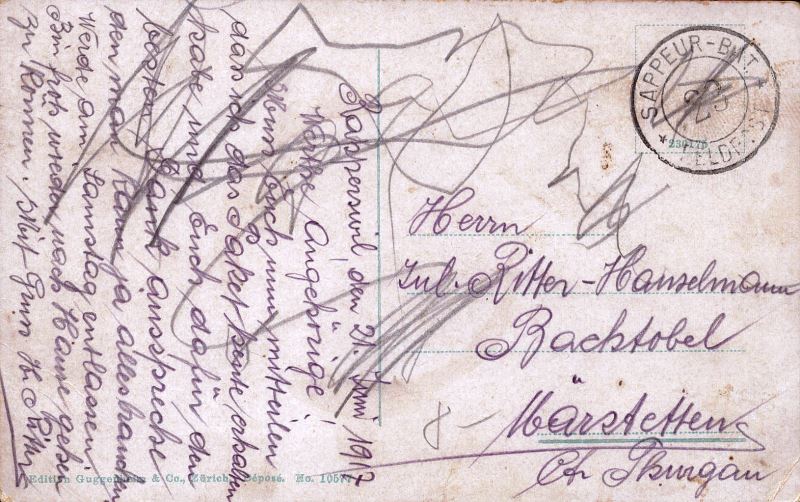 Rapperswil den 21. Juni 1917
Werthe Angehörige!
Muss Euch nun mitteilen
dass ich das Paket heute erhalten
habe und Euch dafür den
besten Dank ausspreche
den man kann ja alles brauchen
Werde am Samstag entlassen
Bin froh wieder nach Hause gehen
zu können. Mit Gruss
Herrn
Jul. Ritter-Hanselmann
Backtobel
Märstetten
Ct. Thurgau
8-
SAPPEUR-BAT.
23
FELDPOST
Edition Guggenheim & Co., Zürich. Déposé. No. 10577